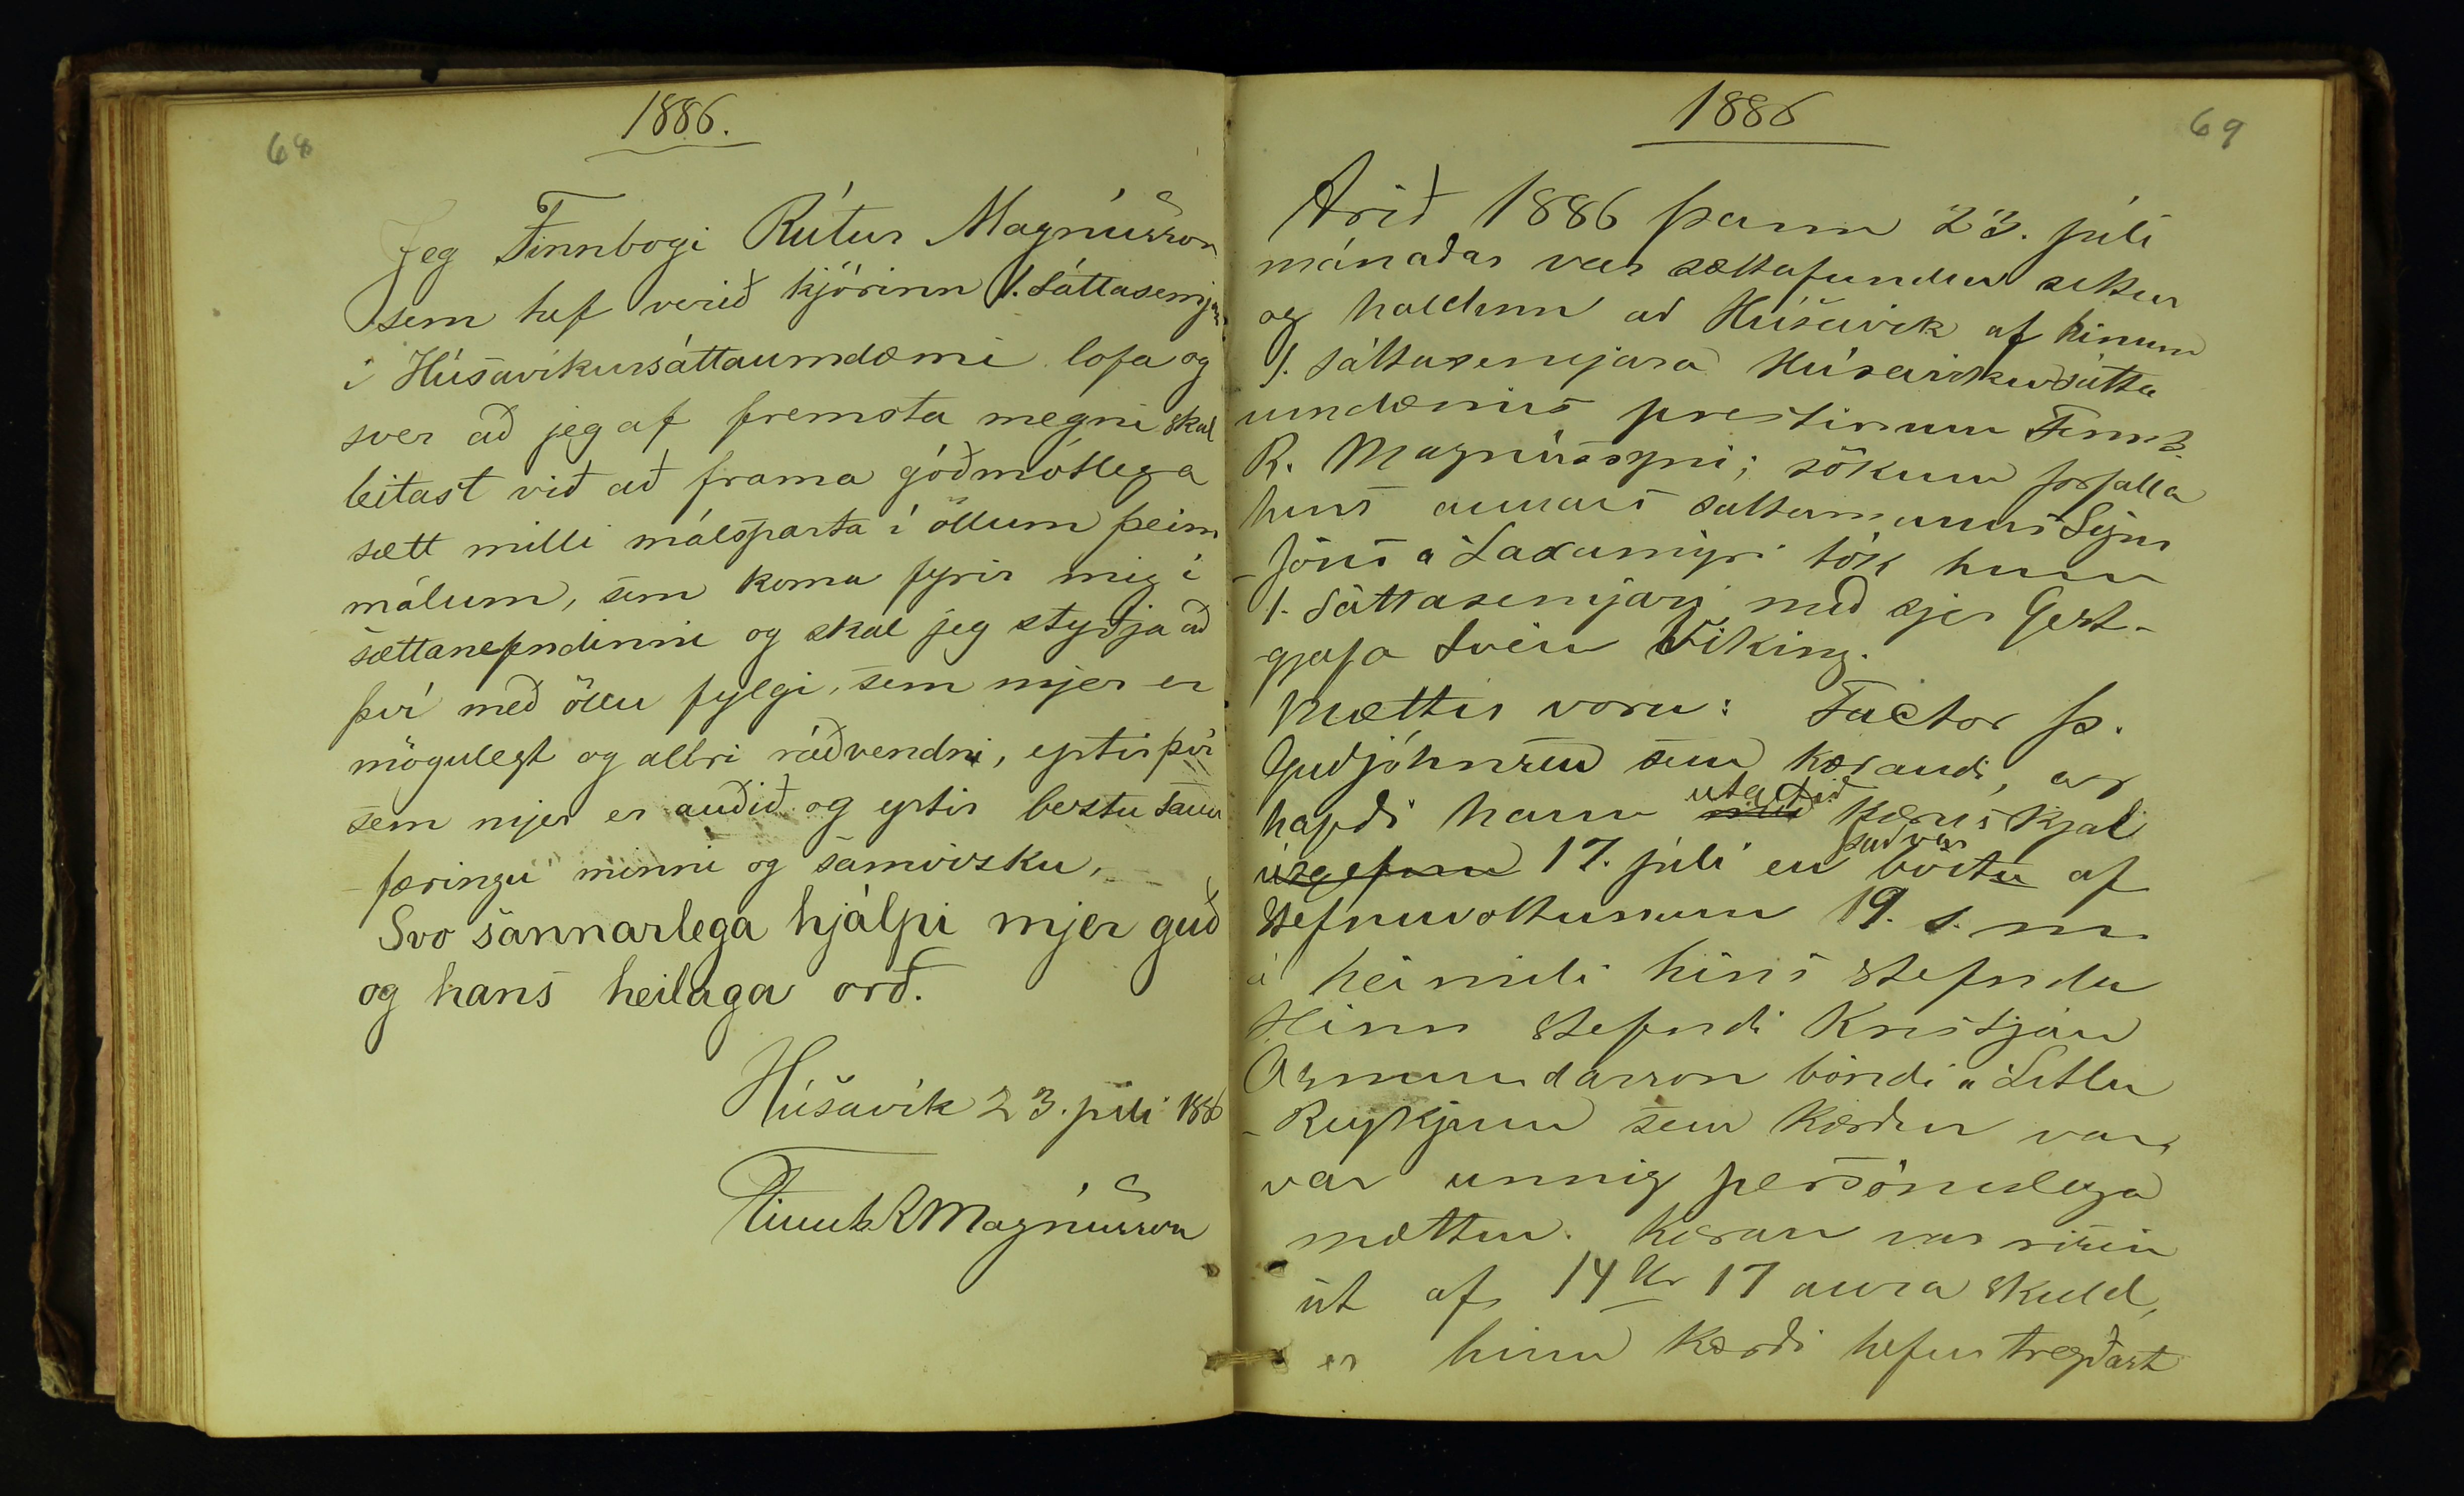 68
1886.
Jeg Finnbogi Rútur Magnússon
sem hef verið kjörinn 1. Sáttasemjari
í Húsavíkursáttaumdæmi lofa og
sver að jeg af fremsta megni skal
leitast við að frama góðmótlega
sætt milli málsparta í öllum þeim
málum, sem koma fyrir mig í
sættanefndinni og skal jeg styðja að
því með öllu fylgi, sem mjer er
mögulegt og allri ráðvendni, eptir því
sem mjer er auðið og eptir bestu sann
færingu minni og samvizku,
Svo sannarlega hjálpi mjer guð
og hans heilaga orð.
Húsavík 23. júli 1886
Finnb R Magnússon
1886
69
Arið 1886 þann 23. júli
mánaðar var sættafundur settur
og haldinn að Húsavík af hinum
1. sáttasemjara Húsavíkursátta
umdæmis prestinum Finnb.
R. Magnússyni; sökum forfalla
hins annars sáttamanns Sigur
-jóns á Laxamýri tók hinn
1. Sáttasemjari með sjer Gest-
gjafa Svein Víking.
Mættir voru: Factor Þ.
Guðjóhnsen sem kærandi, og
hafði hann með kæruskjal
útgefnu 17. júli en það var birtu af
stefnuvottunum 19. s. m.
á heimili hins stefnda
Hinn stefndi Kristján
Asmundarson bóndi á Litlu
-Reykjum sem kærður var,
var einnig persónulega
mættur. Kæran var risin
út af 14 Kr 17 aura skuld,
er hinn kærði hefur tregðast